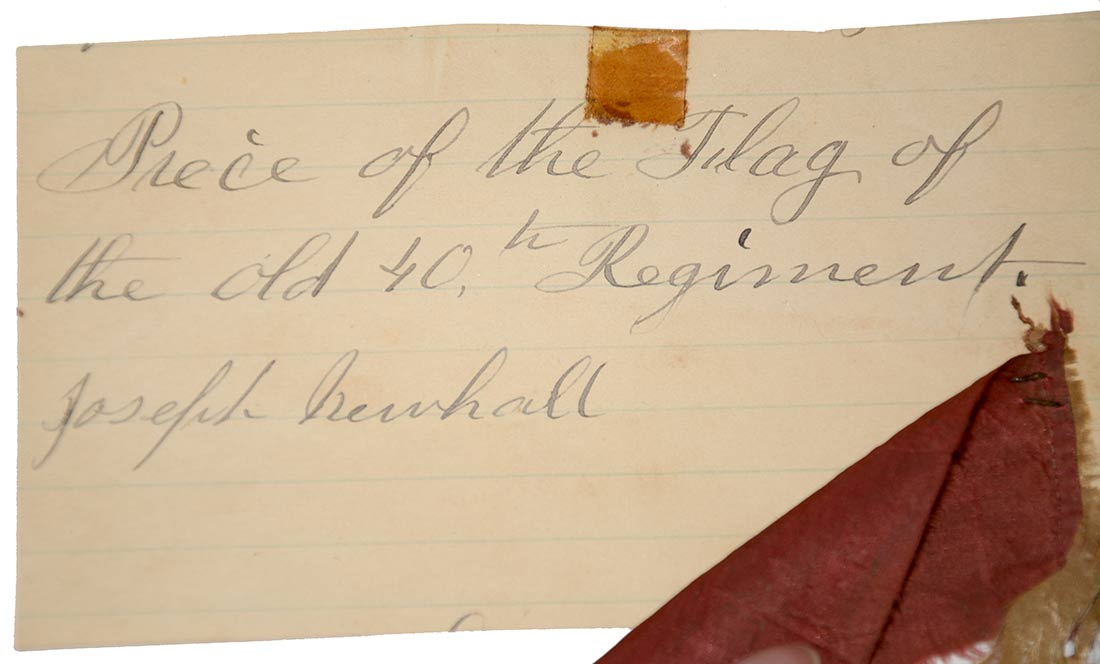 Piece of the Flag of
the old 40,th Regiment.
Joseph Newhall